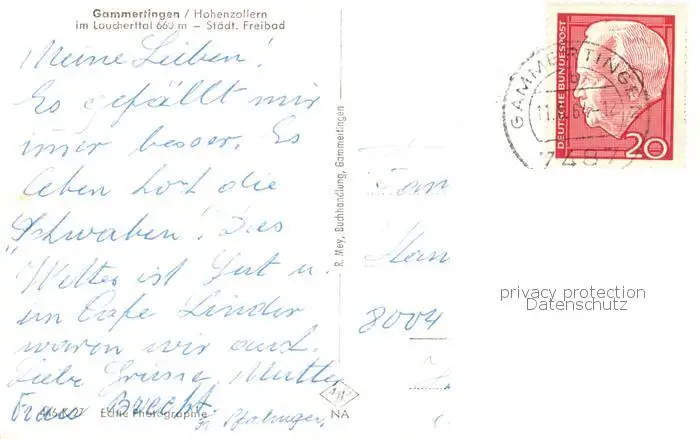 Gammertingen / Hohenzollern
im Laucherttal 660 m – Städt. Freibad
Meine Lieben!
Es gefällt mir
imer besser. Es
leben hoch die
"Schwaben". Das
Wetter ist Gut u.
im Cafe Linder
waren wir auch.
Liebe Grüsse, Mutter
Frau Brecht
Echte Photographie
R. Mey, Buchhandlung, Gammertingen
NA
8004
DEUTSCHE BUNDESPOST
20
GAMMERTINGEN
7487
privacy protection
Datenschutz